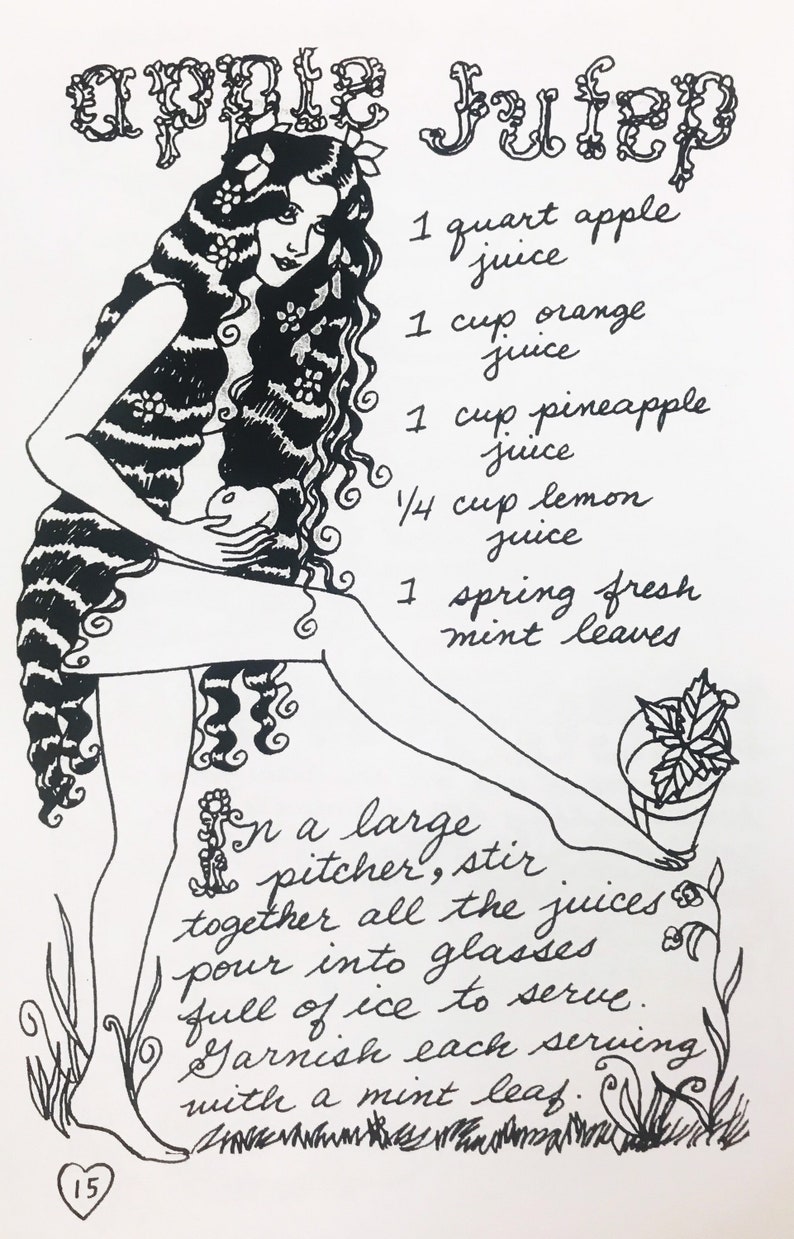 apple Julep
1 quart apple
juice
1 cup orange
juice
1 cup pineapple
juice
1/4 cup lemon
juice
1 spring fresh
mint leaves
In a large
pitcher, stir
together all the juices
pour into glasses
full of ice to serve.
Garnish each serving
with a mint leaf.
15